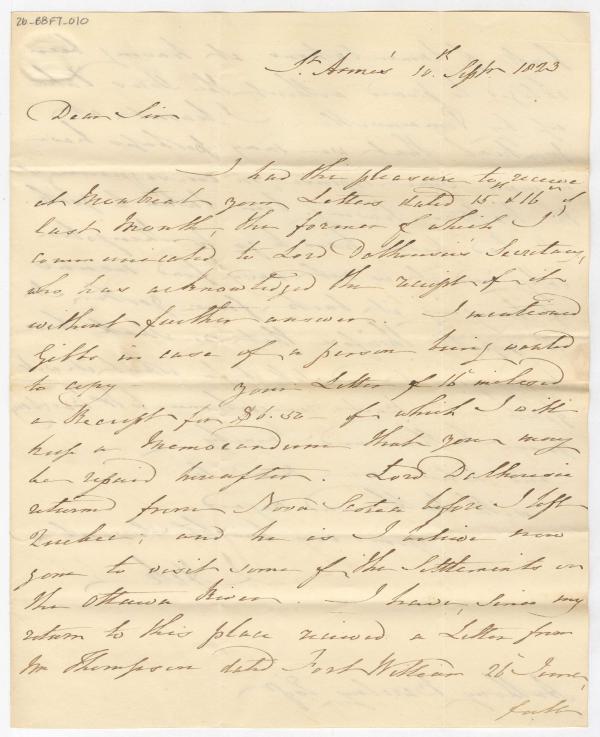 26-BBF7-010
St. Armes 10th Septr 1823
Dear Sir
I had the pleasure to receive
at Montreal your Letters dated 15 & 16th of
last Month, the former of which I
communicated to Lord Dalhousie's Secretary,
who has acknowledged the receipt of it
without further answer. I mentioned
Gibbs in case of a person being wanted
to copy – your Letter of 16th inclosed
a Receipt for $6.50 – of which I will
keep a Memorandum that you may
be repaid hereafter. Lord Dalhousie
returned from Nova Scotia before I left
Quebec; and he is I believe now
gone to visit some of the Settlements on
the Ottawa River. I have, since my
return to this place received a Letter from
Mr Thompson dated Fort William 26 June,